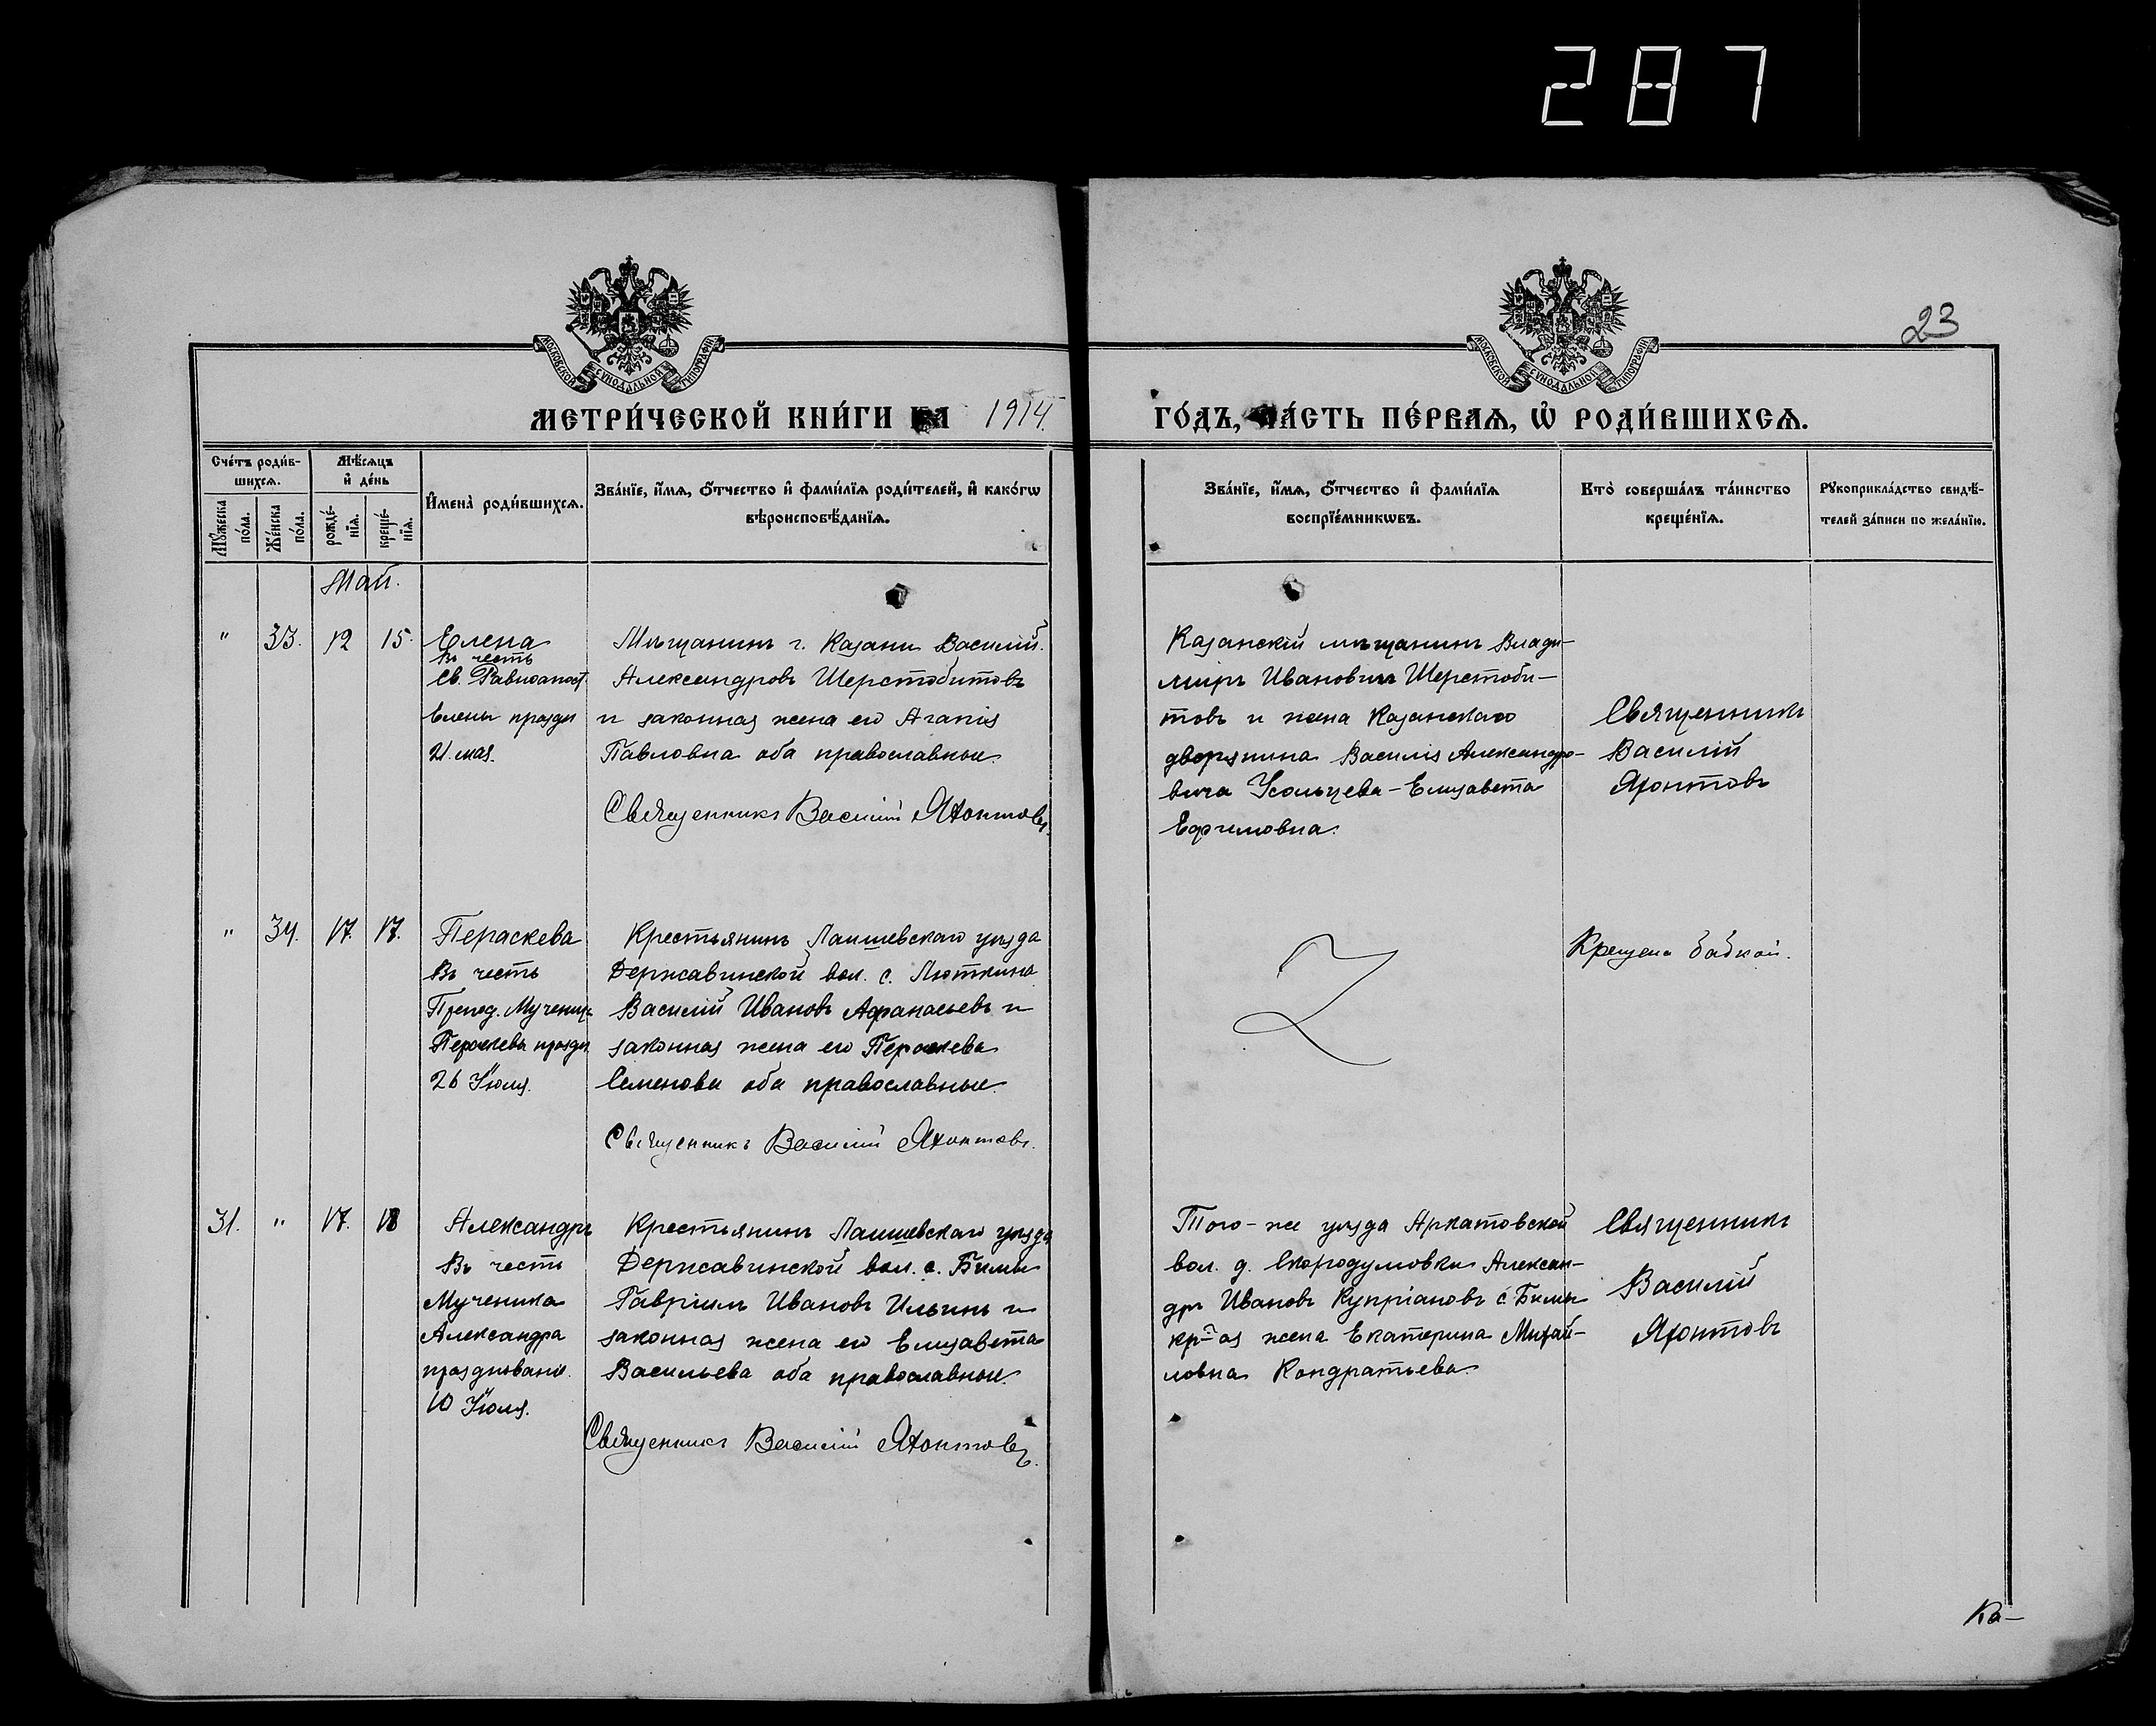 287
23
МОСКОВСКОЙ СѴНОДАЛЬНОЙ ТИПОГРАФІИ
МОСКОВСКОЙ СѴНОДАЛЬНОЙ ТИПОГРАФІИ
МЕТРИ́ЧЕСКОЙ КНИ́ГИ НА 1914.
ГО́ДЪ, ЧА́СТЬ ПЕ́РВАѦ, Ѡ҆ РОДИ́ВШИХСѦ.
Сче́тъ роди́в-
шихсѧ.
Мѣ́сѧцъ
и҆ де́нь
Мꙋ́жеска
по́ла.
Же́нска
по́ла.
рожде́-
нїѧ.
креще́-
нїѧ.
И҆мена̀ роди́вшихсѧ.
Зва́нїе, и҆́мѧ, ѻ҆́тчество и҆ фами́лїѧ роди́телей, и҆ како́гѡ
вѣроисповѣ́данїѧ.
Зва́нїе, и҆́мѧ, ѻ҆́тчество и҆ фами́лїѧ
воспрїе́мникѡвъ.
Кто̀ соверша́лъ та́инство
креще́нїѧ.
Рꙋкоприкла́дство свидѣ́-
телей за́писи по жела́нїю.
Май.
" 33. 12 15.
Елена
въ честь
св. Равноапост.
Елены праздн
21. мая.
Мѣщанинъ г. Казани Василій
Александровъ Шерстобитовъ
и законная жена его Аганія
Павловна оба православные.
Священникъ Василій Яхонтовъ.
Казанскій мѣщанинъ Влади-
міръ Ивановичъ Шерстоби-
товъ и жена Казанскаго
дворянина Василія Александро-
вича Усольцева - Елизавета
Ефимовна.
Священникъ
Василій
Яхонтовъ
" 34. 17. 17.
Пераскева
Въ честь
Препод. Мучениц.
Пераскевы праздн.
26 Іюля.
Крестьянинъ Лаишевскаго уѣзда
Державинской вол. с. Люткина
Василій Ивановъ Афанасьевъ и
законная жена его Пераскева
Семенова оба православные.
Священникъ Василій Яхонтовъ.
Крещена бабкой.
31. " 17. 18
Александръ
Въ честь
Мученика
Александра
празднованіе
10 Іюля.
Крестьянинъ Лаишевскаго уѣзда
Державинской вол. с. Бимы
Гавріилъ Ивановъ Ильинъ и
законная жена его Елизавета
Васильева оба православные.
Священникъ Василій Яхонтовъ.
Того-же уѣзда Аркатовской
вол. д. Скородумовки Алексан-
дръ Ивановъ Купріановъ с. Бимы
кр-ая жена Екатерина Михай-
ловна Кондратьева.
Священникъ
Василій
Яхонтовъ
Ка-